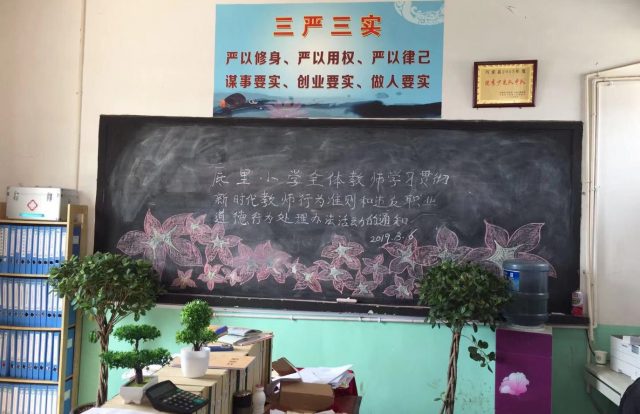 三严三实
严以修身、严以用权、严以律己
谋事要实、创业要实、做人要实
底里小学全体教师学习贯彻
新时代教师行为准则和违反职业
道德行为处理办法活动的通知
2019.3.6